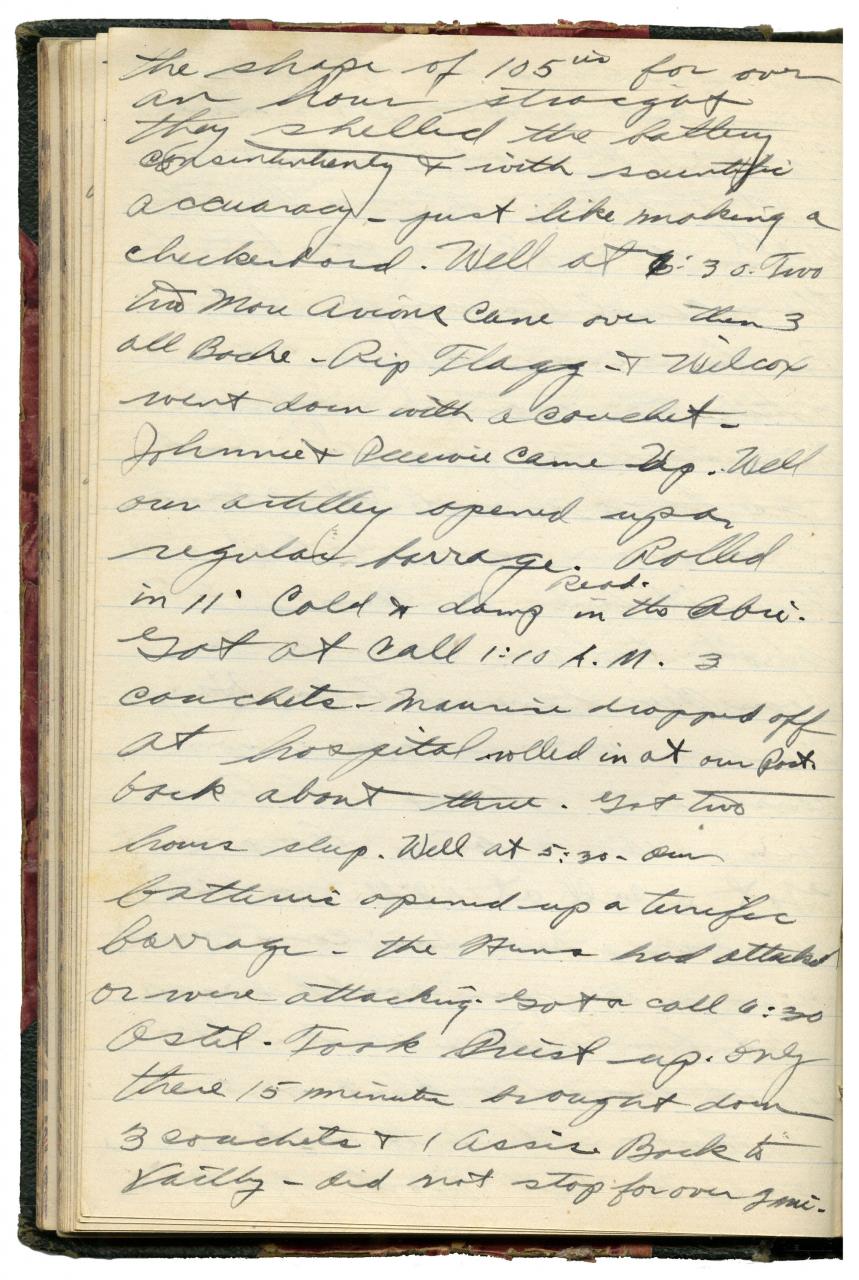 the shape of 105us for over
an hour straight
they shelled the battery
& with scientific
accuaracy - just like making a
checkerboard. Well at 6:30. Two
two More Avions Came over then 3
all Boche - Rip Flagg - & Wilcox
went down with a couchet -
Johnnie & Peewie Came Up. Well
our artilley opened up a
regular barrage. Rolled
Read.
in 11. Cold & damp in the Abri.
Got at Call 1:10 A.M. 3
couchets - Maurice dropped off
at hospital rolled in at our Post.
back about three. Got two
hours sleep. Well at 5:30 - Our
batteries opened up a terrific
barrage - the Huns had attacked
or were attacking. Got a call 6:30
Ostel. Took Priest up. Only
there 15 minutes brought down
3 couchets & 1 Assis. Back to
Vailly - did not stop for over